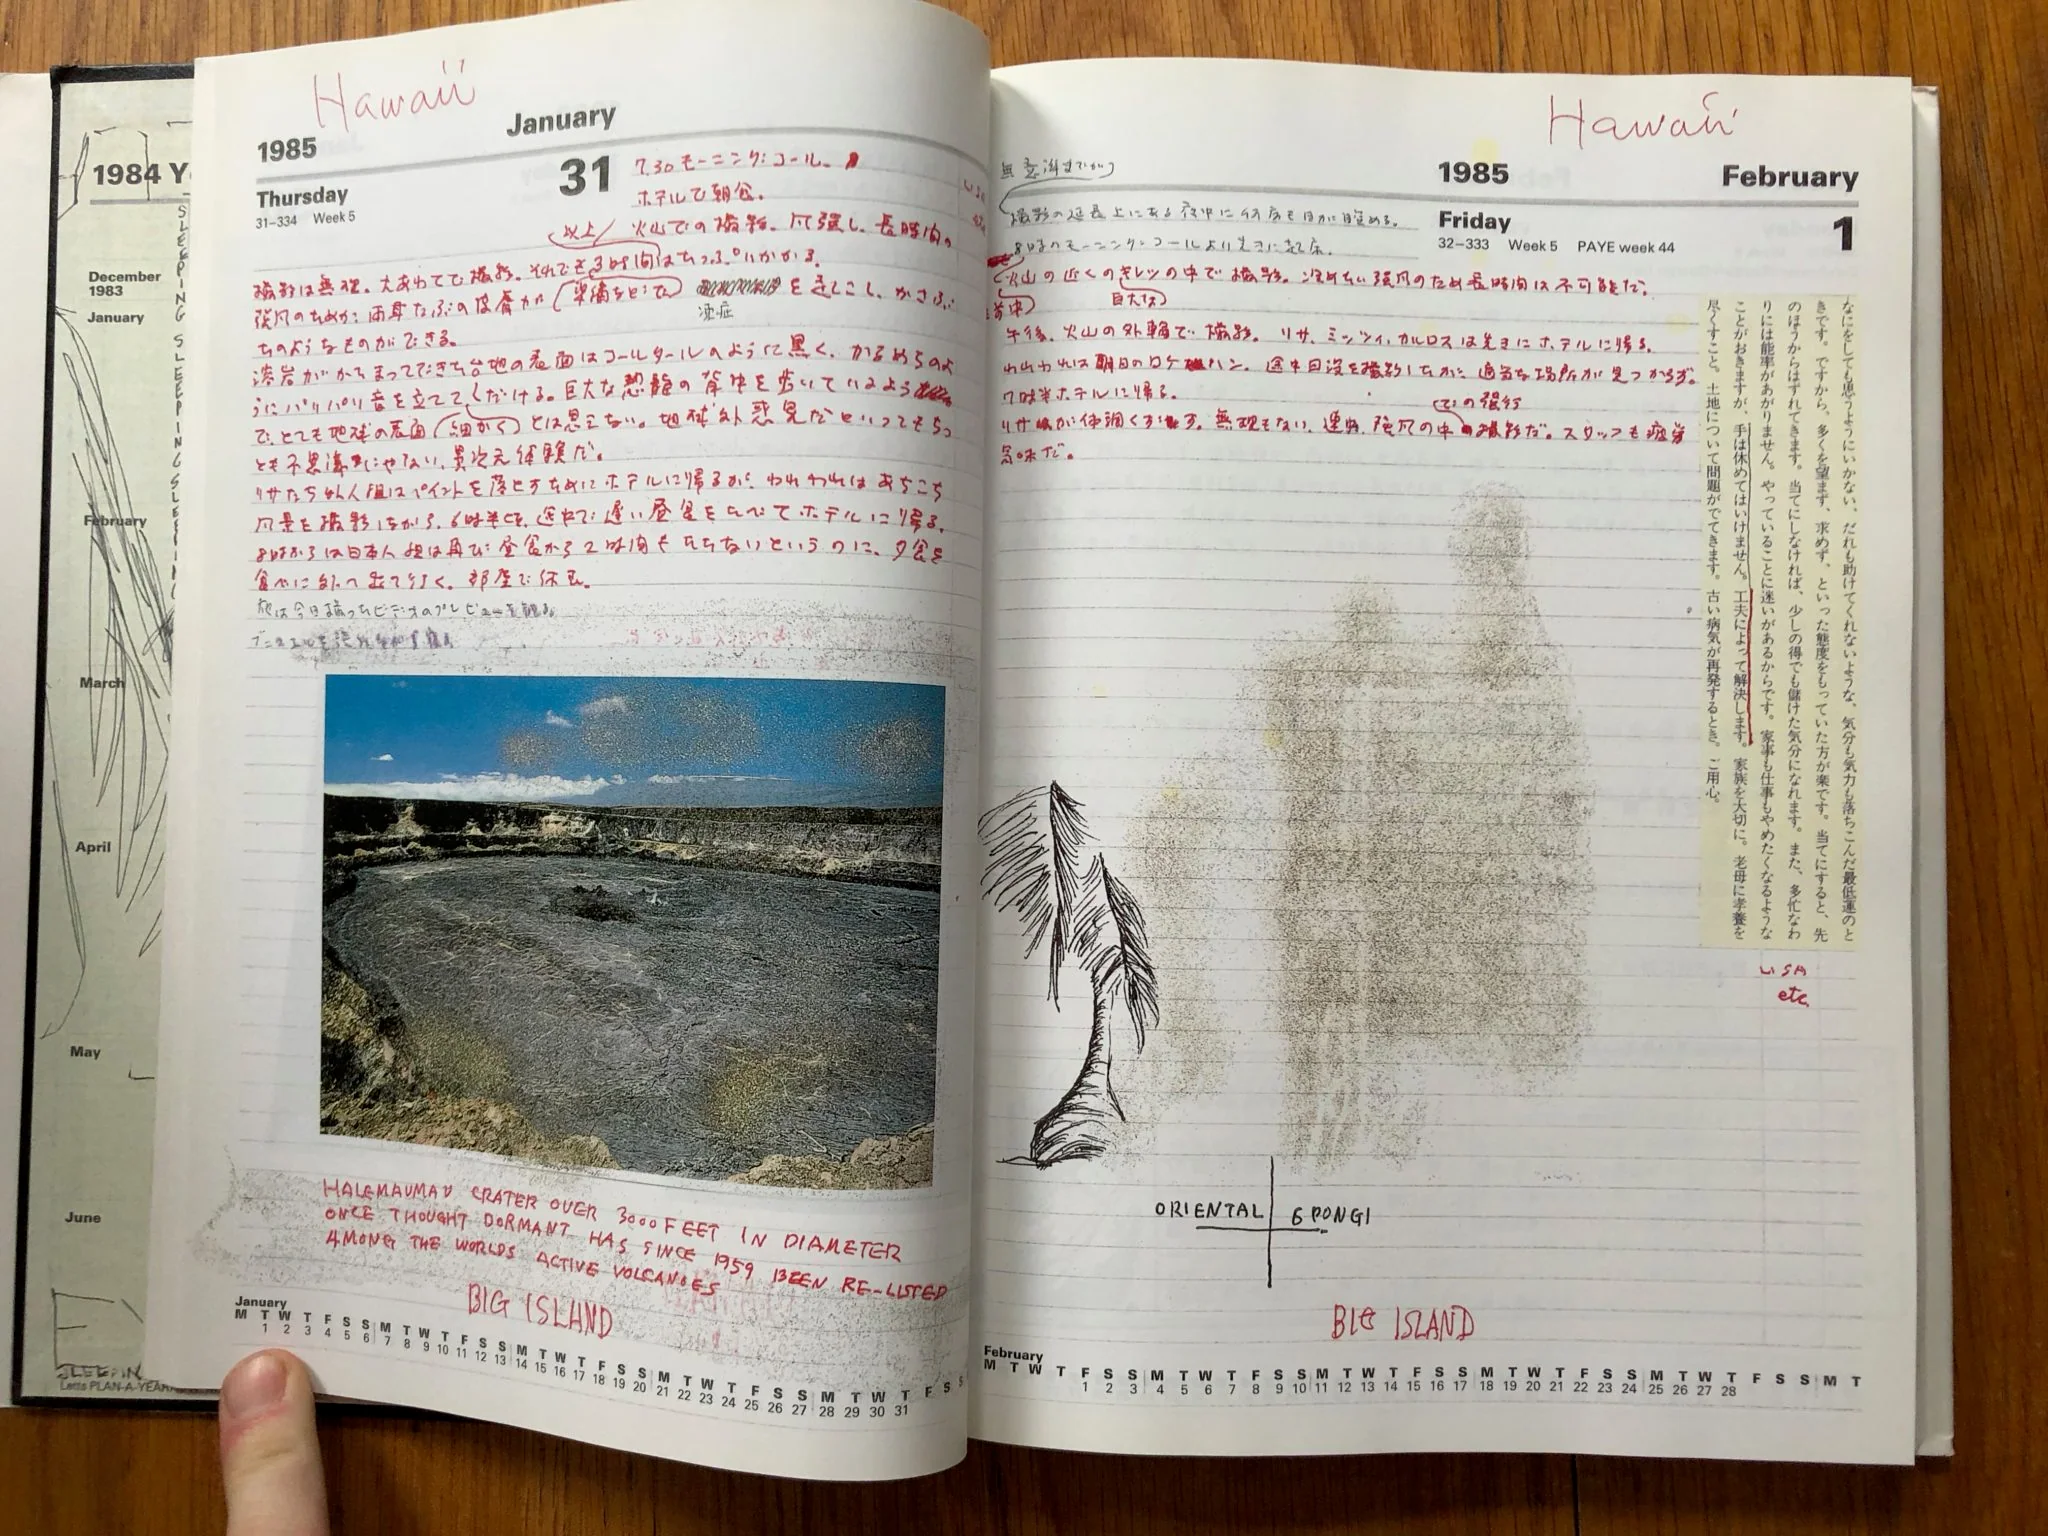 1984 Y
SLEEPING SLEEPING SLEEPING
December
1983
January
February
March
April
May
June
SLEEPIN
Letts PLAN-A-YEAR
Hawaii
1985
January
Thursday
31
31–334 Week 5
7.30 モーニング・コール。
ホテルで朝食。
以上
火山での撮影。風強し、長時間の
撮影は無理。大あわてで撮影。それでも3時間はたっぷりかかる。
強風のためか、両耳たぶの皮膚が
凍症
を起こし、かさぶ
たのようなものができる。
溶岩がかたまってできた台地の表面はコールタールのように黒く、かるめらのよ
うにパリパリ音を立ててくだける。巨大な恐龍の背中を歩いているよう
で、とても地球の表面
細かく
とは思えない。地球外惑星だといってもちっ
とも不思議じゃない、異次元体験だ。
リサたち外人組はペイントを落とすためにホテルに帰るが、われわれはあちこち
風景を撮影しながら、6時半ごろ、途中で遅い昼食をたべてホテルに帰る。
8時から日本人組は再び、昼食から2時間もたたないというのに、夕食を
食べに外へ出て行く。部屋で休む。
夜は今日撮ったビデオのプレビューを観る。
HALEMAUMAU CRATER OVER 3000 FEET IN DIAMETER
ONCE THOUGHT DORMANT HAS SINCE 1959 BEEN RE-LISTED
AMONG THE WORLDS ACTIVE VOLCANOES
BIG ISLAND
January
M T W T F S S M T W T F S S M T W T F S S M T W T F S S M T W T F S S
1 2 3 4 5 6 7 8 9 10 11 12 13 14 15 16 17 18 19 20 21 22 23 24 25 26 27 28 29 30 31
Hawaii
1985
February
Friday
1
32–333 Week 5 PAYE week 44
撮影の延長上にある夜中に何度も目が覚める。
8時のモーニング・コールより先に起床。
火山の近くのキレツの中で撮影。冷めたい強風のため長時間は不可能だ。
巨大な
午後、火山の外輪で撮影。リサ、ミッツィ、カルロスは先にホテルに帰る。
われわれは明日のロケ・ハン。途中日没を撮影したが、適当な場所が見つからず。
7時半ホテルに帰る。
での強行
リサが体調くずす。無理もない、連日、強風の中 撮影だ。スタッフも疲労
気味だ。
なにをしても思うようにいかない、だれも助けてくれないような、気分も気力も落ちこんだ最低運のと
きです。ですから、多くを望まず、求めず、といった態度をもっていた方が楽です。当てにすると、先
のほうからはずれてきます。当てにしなければ、少しの得でも儲けた気分になれます。また、多忙なわ
りには能率があがりません。やっていることに迷いがあるからです。家事も仕事もやめたくなるような
ことがおきますが、手は休めてはいけません。工夫によって解決します。家族を大切に。老母に孝養を
尽くすこと。土地について問題がでてきます。古い病気が再発するとき。ご用心。
LISA
etc.
ORIENTAL
6 PONGI
BIG ISLAND
February
M T W T F S S M T W T F S S M T W T F S S M T W T F S S M T W T F S S M T
1 2 3 4 5 6 7 8 9 10 11 12 13 14 15 16 17 18 19 20 21 22 23 24 25 26 27 28